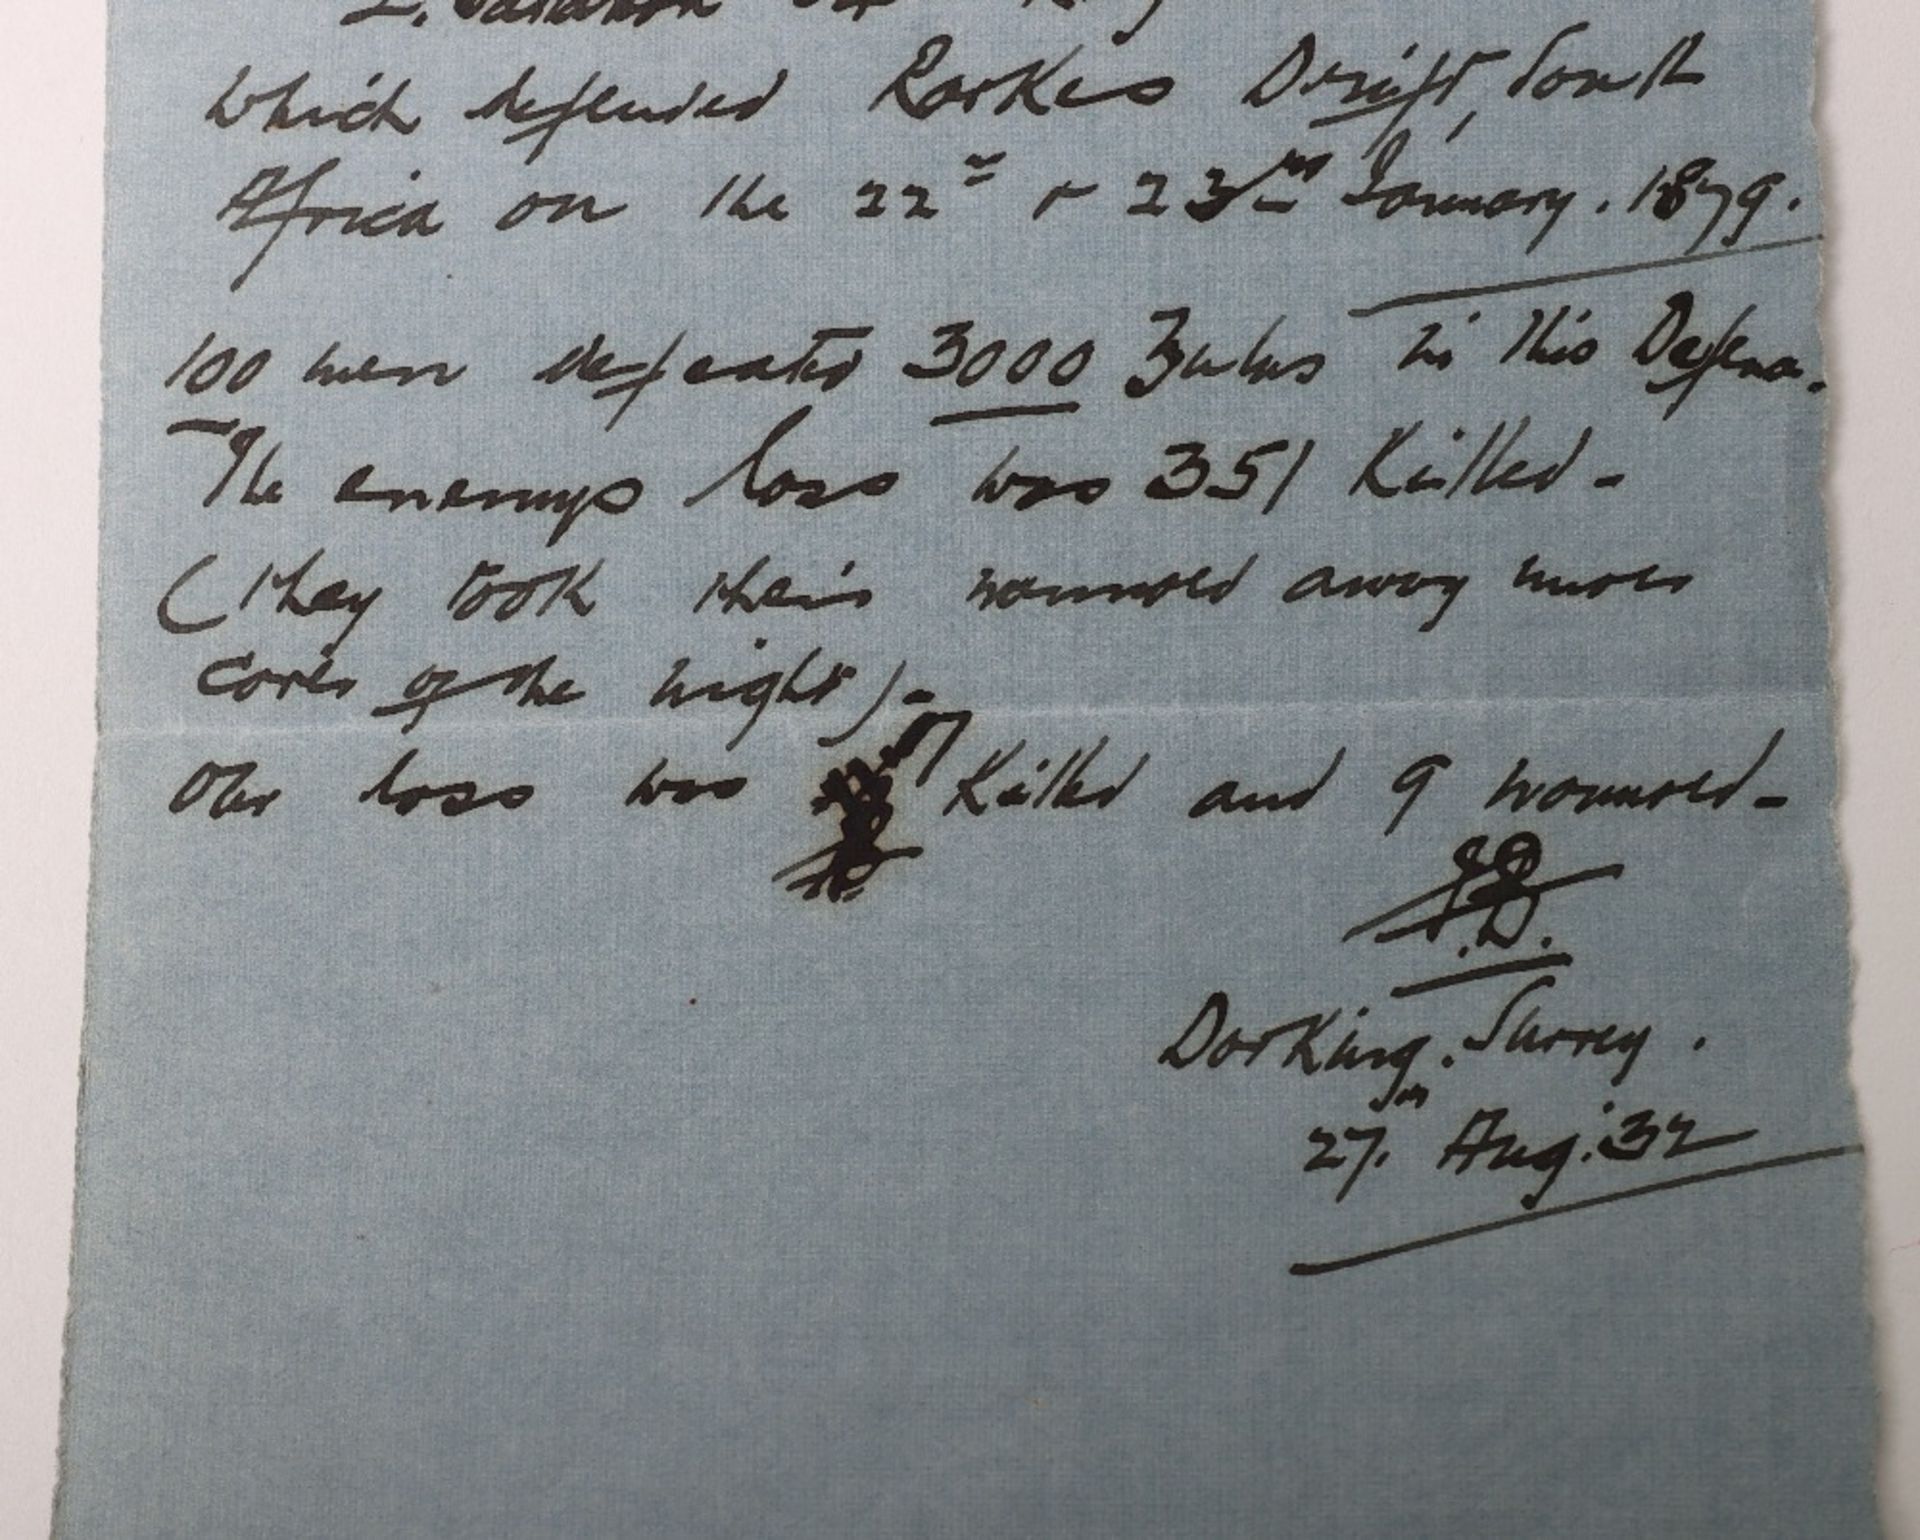 which defended Rorkes Drift, South
Africa on the 22nd & 23rd January. 1879.
100 men defeated 3000 Zulus in this Defence.
The enemys loss was 351 Killed -
(they took their wounded away under
cover of the night) -
Our loss was 17 Killed and 9 wounded -
F.B.
Dorking. Surrey.
27th Aug: 32